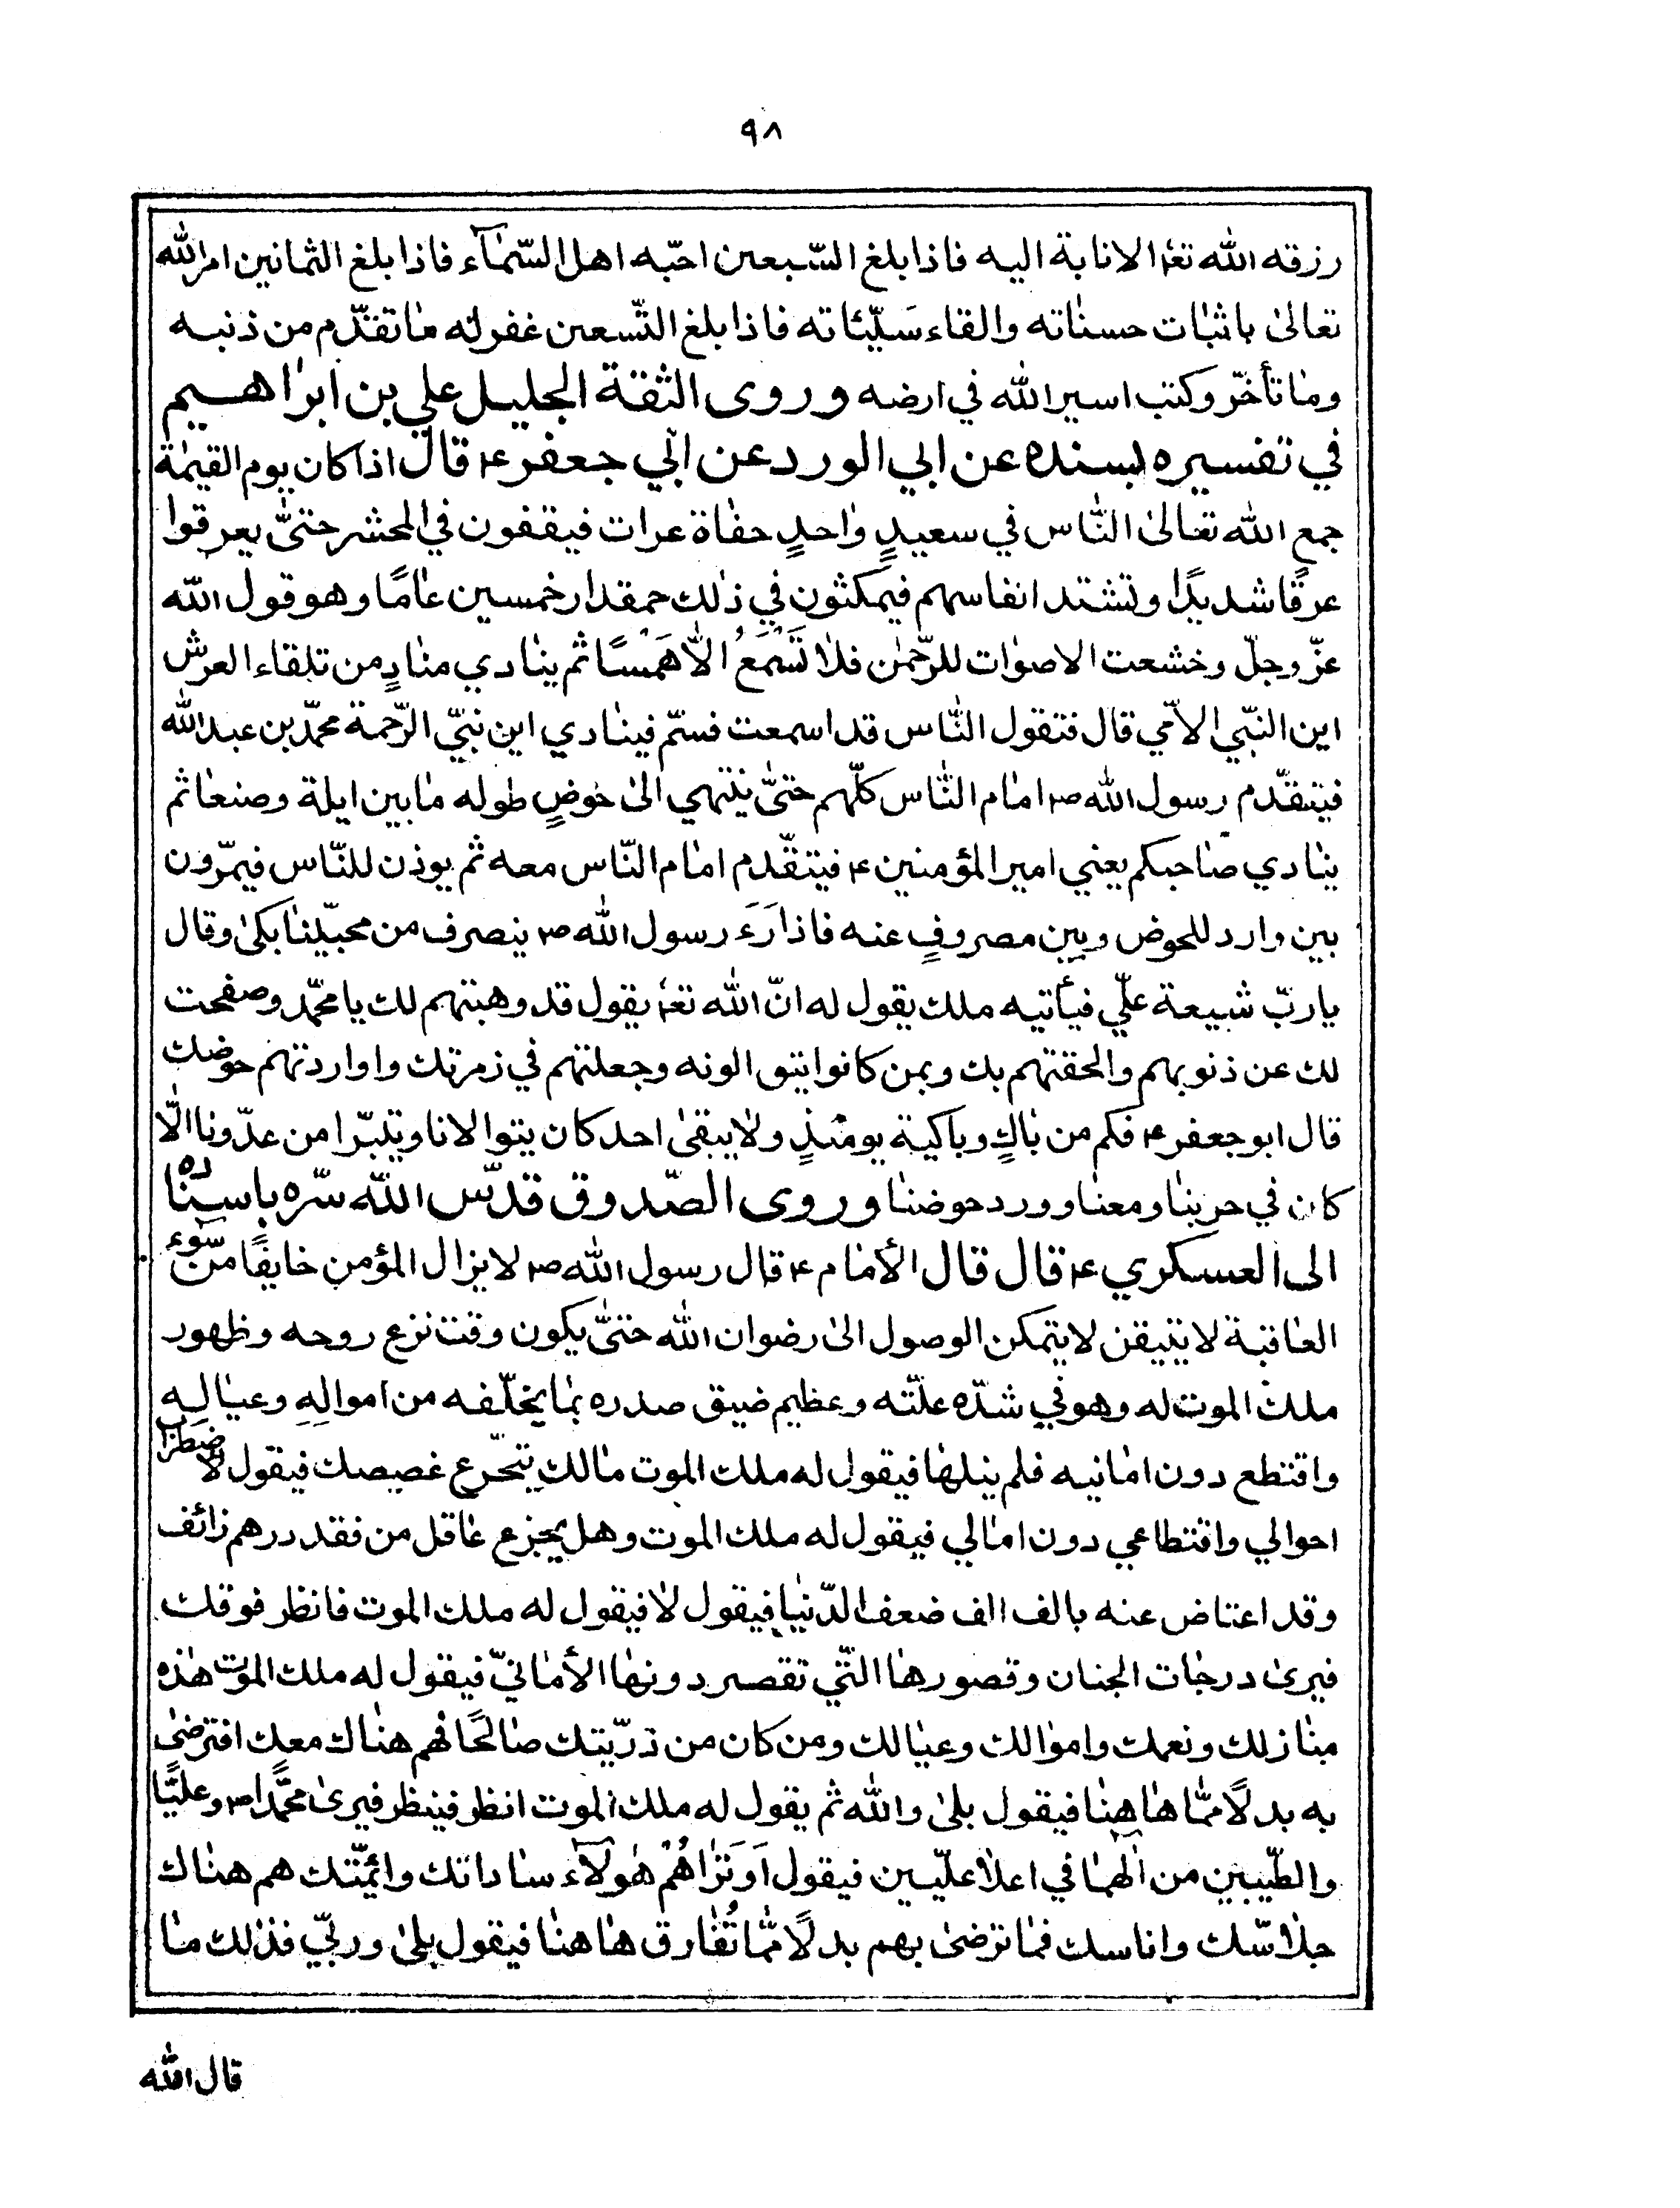 ٩٨
رزقه الله تعا الانابة اليه فاذا بلغ السّبعين احبّه اهل السّمآء فاذا بلغ الثمانين امر الله
تعالى باثبات حسناته والقاء سَيّئاته فاذا بلغ التّسعين غفر له ما تقدّم من ذنبه
وما تأخّر وكتب اسير الله في ارضه وروى الثقة الجليل علي بن ابراهيم
في تفسيره بسنده عن ابي الورد عن ابي جعفر ع قال اذا كان يوم القيمة
جمع الله تعالى النّاس في سعيدٍ واحدٍ حفاة عرات فيقفون في المحشر حتىّ يعرقوا
عرقًا شديدًا وتشتد انفاسهم فيمكثون في ذلك حمقدار خمسين عامًا وهو قول الله
عزّ وجلّ وخشعت الاصوات للرّحمن فلا تَسْمَعُ الاّ هَمْسًا ثم ينادي منادٍ من تلقاء العرش
اين النّبي الاّمي قال فتقول النّاس قد اسمعت فسمّ فينادي اين نبيّ الرّحمة محمّد بن عبد الله
فيتقدّم رسول الله ص امام النّاس كلّهم حتىّ ينتهي الى خوضٍ طوله ما بين ايلة وصنعا ثم
ينادي صاحبكم يعني امير المؤمنين ع فيتقدّم امام النّاس معه ثم يوذن للنّاس فيمرّون
بين وارد للحوض وبين مصروفٍ عنه فاذا رَءَ رسول الله ص ينصرف من محبّينا بكى وقال
يا ربّ شيعة عليّ فيأتيه ملك يقول له انّ الله تعا يقول قد وهبتهم لك يا محمّد وصفحت
لك عن ذنوبهم والحقتهم بك وبمن كانوا يتوالونه وجعلتهم في زمرتك واواردتهم حوضك
قال ابو جعفر ع فكم من باكٍ وباكية يومئذٍ ولا يبقى احد كان يتوالانا ويتبرّا من عدّونا الّا
كان في حربنا ومعنا وورد حوضنا وروى الصّدوق قدّس اللّه سّره باسناده
الى العسكري ع قال قال الأمام ع قال رسول الله ص لا يزال المؤمن خايفًا من سَوء
العاقبة لا يتيقن لا يتمكن الوصول الى رضوان الله حتىّ يكون وقت نزع روحه وظهور
ملك الموت له وهو في شدّه علّته وعظيم ضيق صدره بما يخلّفه من امواله وعياله
واقتطع دون امانيه فلم ينلها فيقول له ملك الموت مالك تتجّرع غصصك فيقول لاضطراب
احوالي واقتطاعي دون امالي فيقول له ملك الموت وهل يجزع عاقل من فقد درهم زائف
وقد اعتاض عنه بالف الف ضعف الدّنيا فيقول لا فيقول له ملك الموت فانظر فوقك
فيرى درجات الجنان وقصورها التّي تقصر دونها الأمانيّ فيقول له ملك الموت هذه
منازلك ونعمك واموالك وعيالك ومن كان من ذرّيتك صالحًا فهم هناك معك افترضى
به بدلًا ممّا هاهنا فيقول بلى والله ثم يقول له ملك الموت انظر فينظر فيرى محمّدًا ص وعليًّا
والطّيبين من آلهما في اعلا علّيين فيقول اَوَتَراهُمْ هولآء ساداتك وائمّتك هم هناك
جلاسّك واناسك فما ترضى بهم بدلًا ممّا تُفارق هاهنا فيقول بلى وربيّ فذلك ما
قال الله